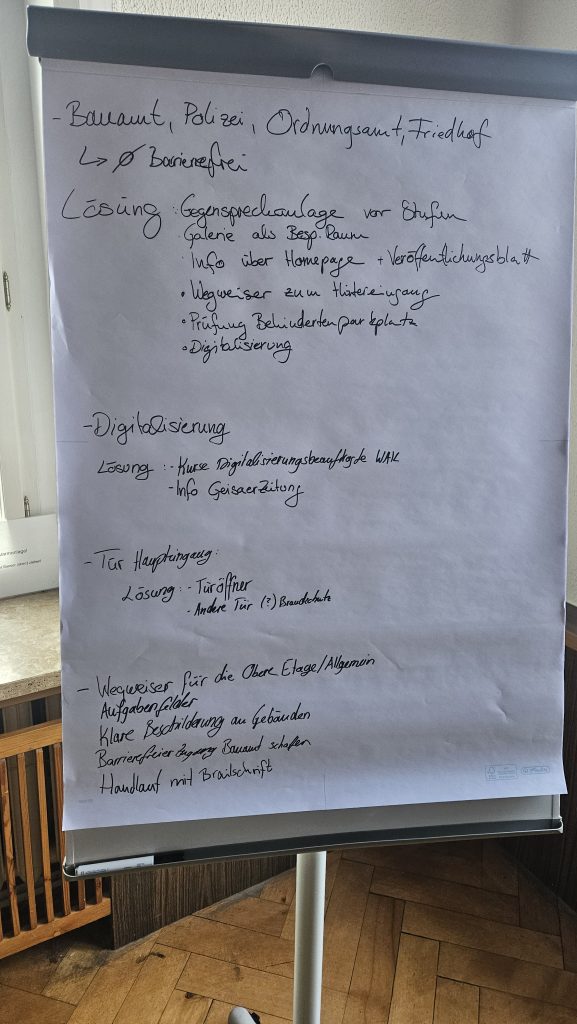 - Bauamt, Polizei, Ordnungsamt, Friedhof
↳ Ø Barrierefrei
Lösung : Gegensprechanlage vor Stufen
· Galerie als Besp. Raum
· Info über Homepage + Veröffentlichungsblatt
• Wegweiser zum Hintereingang
• Prüfung Behindertenparkplatz
• Digitalisierung
- Digitalisierung
Lösung : - Kurse Digitalisierungsbeauftragte WAK
- Info Geisaer Zeitung
- Tür Haupteingang:
Lösung : - Türöffner
- Andere Tür (?) Brandschutz
- Wegweiser für die Obere Etage/Allgemein
Aufgabenfelder
Klare Beschilderung an Gebäuden
Barrierefreier Zugang Bauamt schaffen
Handlauf mit Brailschrift